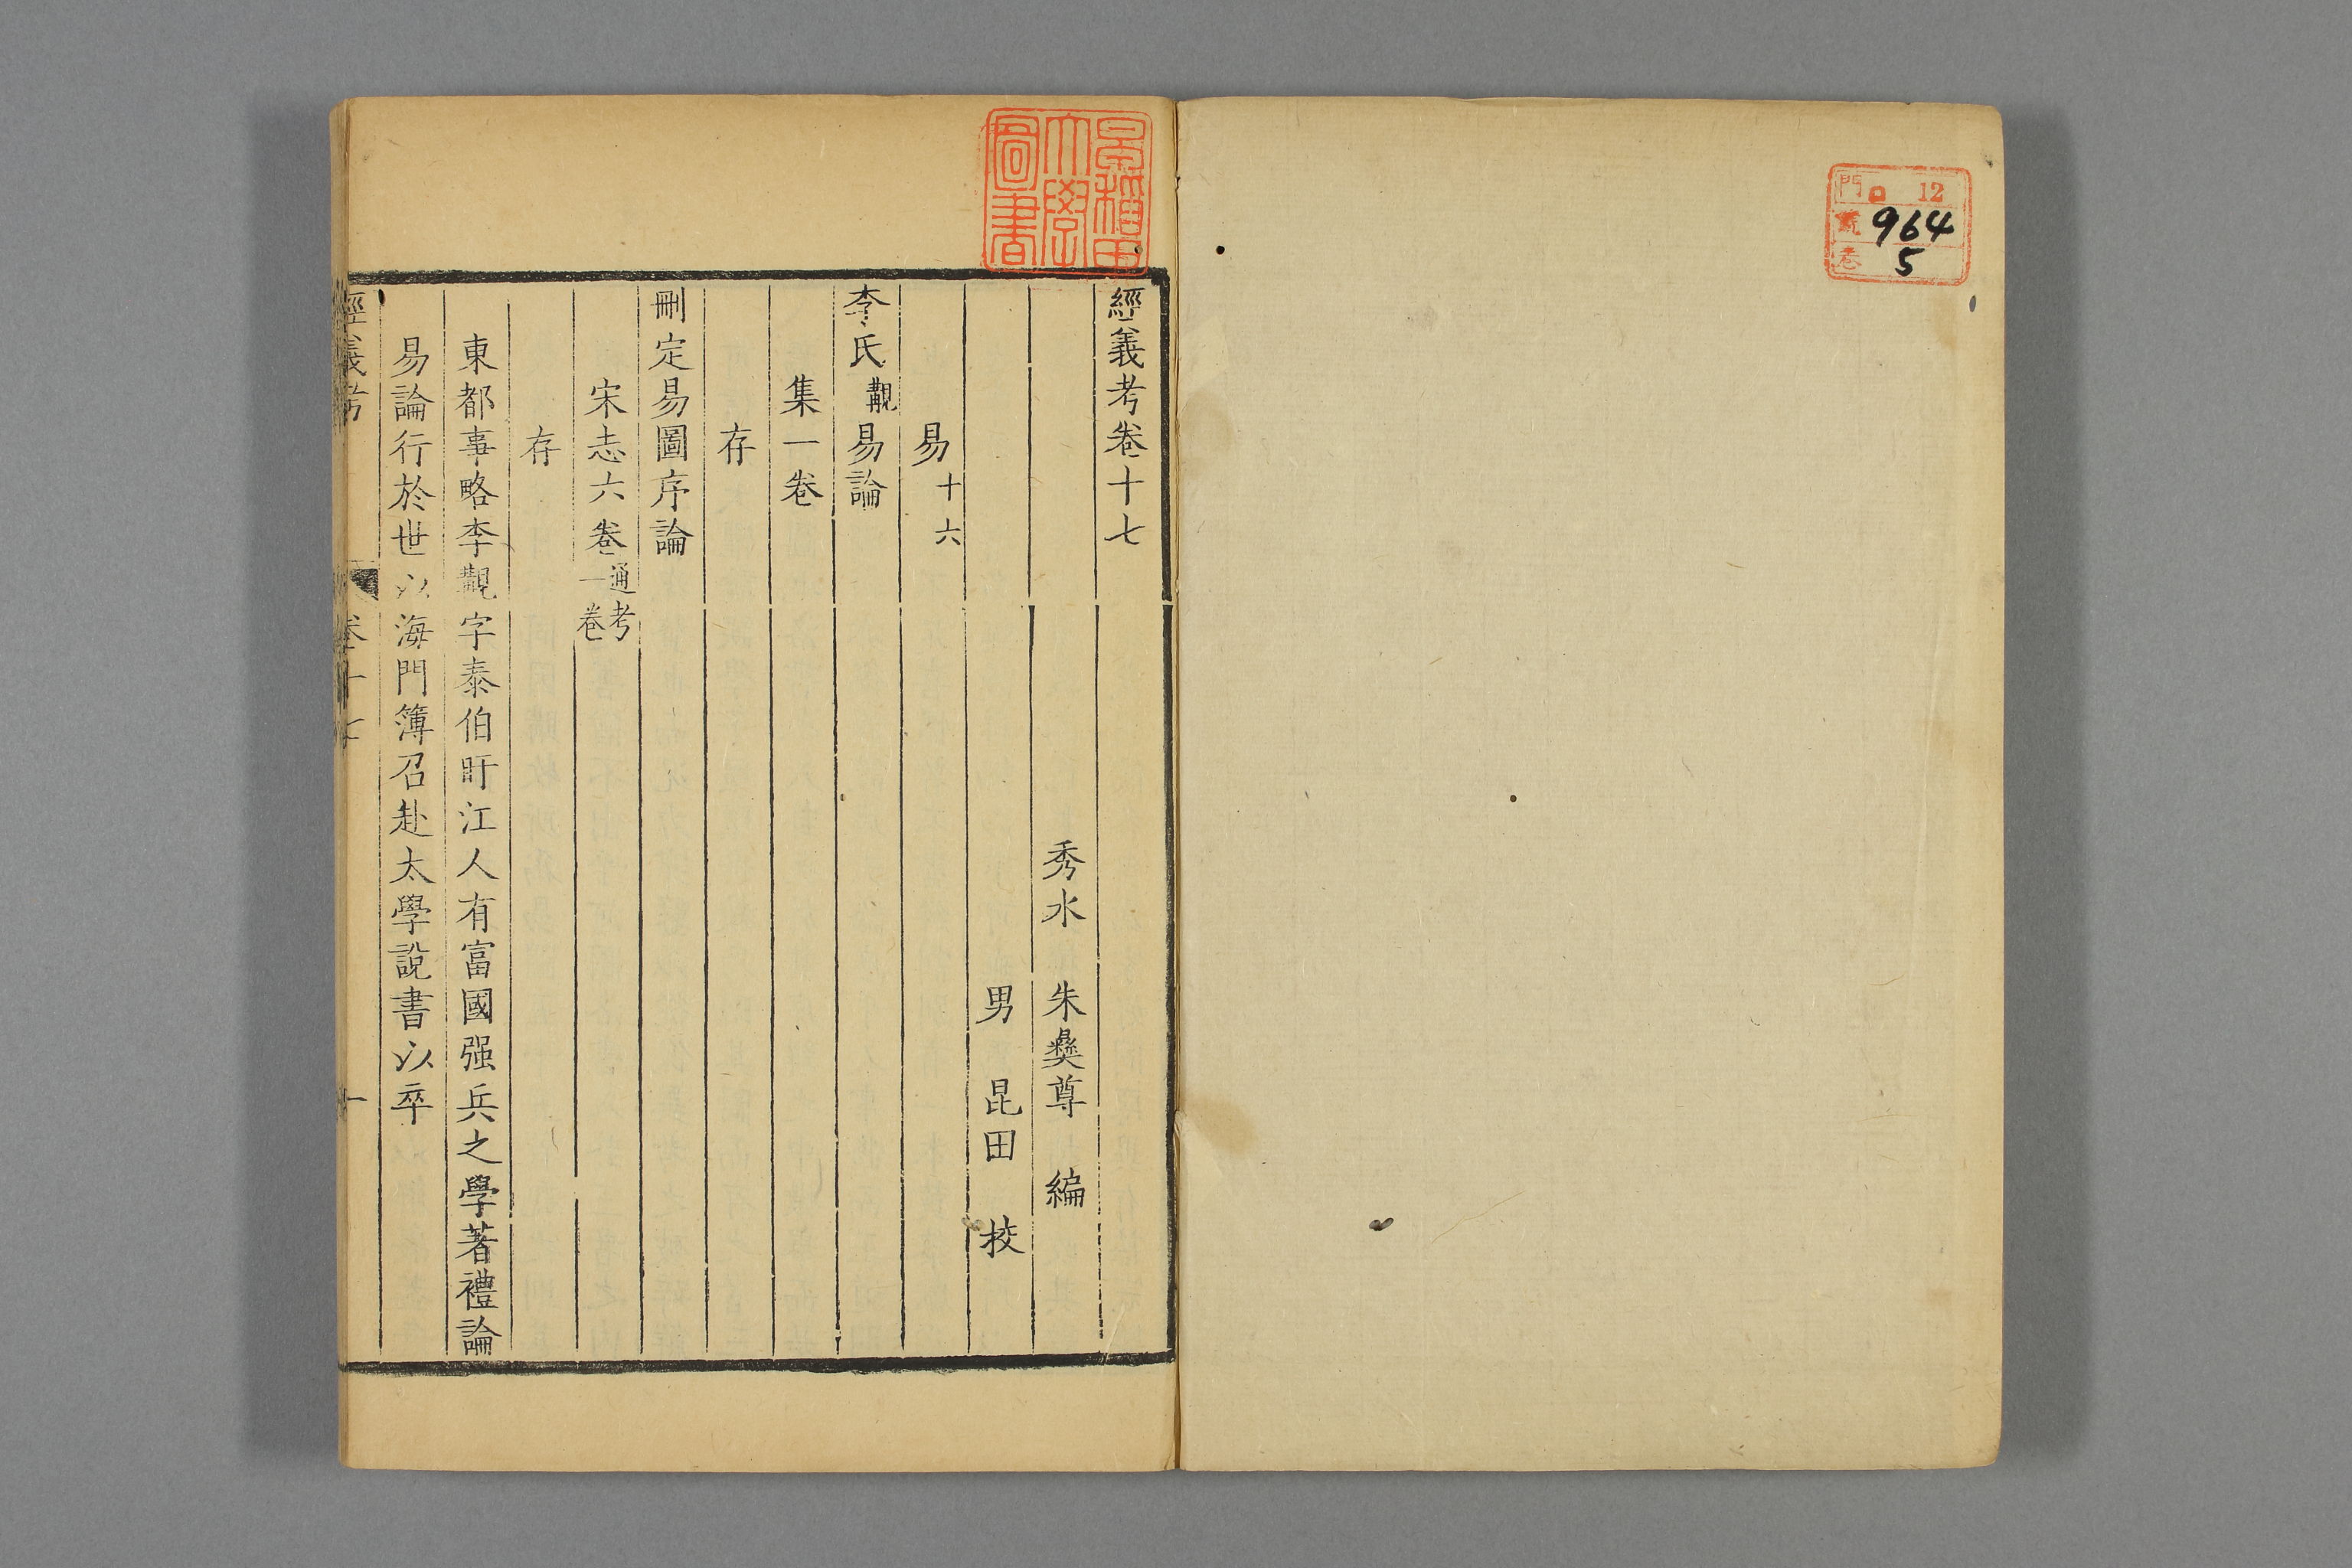 門 ロ 12
號 964
卷 5
早稻田大學圖書
經義考卷十七
秀水 朱彝尊 編
男 昆田 挍
易十六
李氏覯易論
集一卷
存
刪定易圖序論
宋志六卷通考一卷
存
東都事略李覯字泰伯盱江人有富國强兵之學著禮論
易論行於世以海門簿召赴太學說書以卒
經義考 卷十七 一